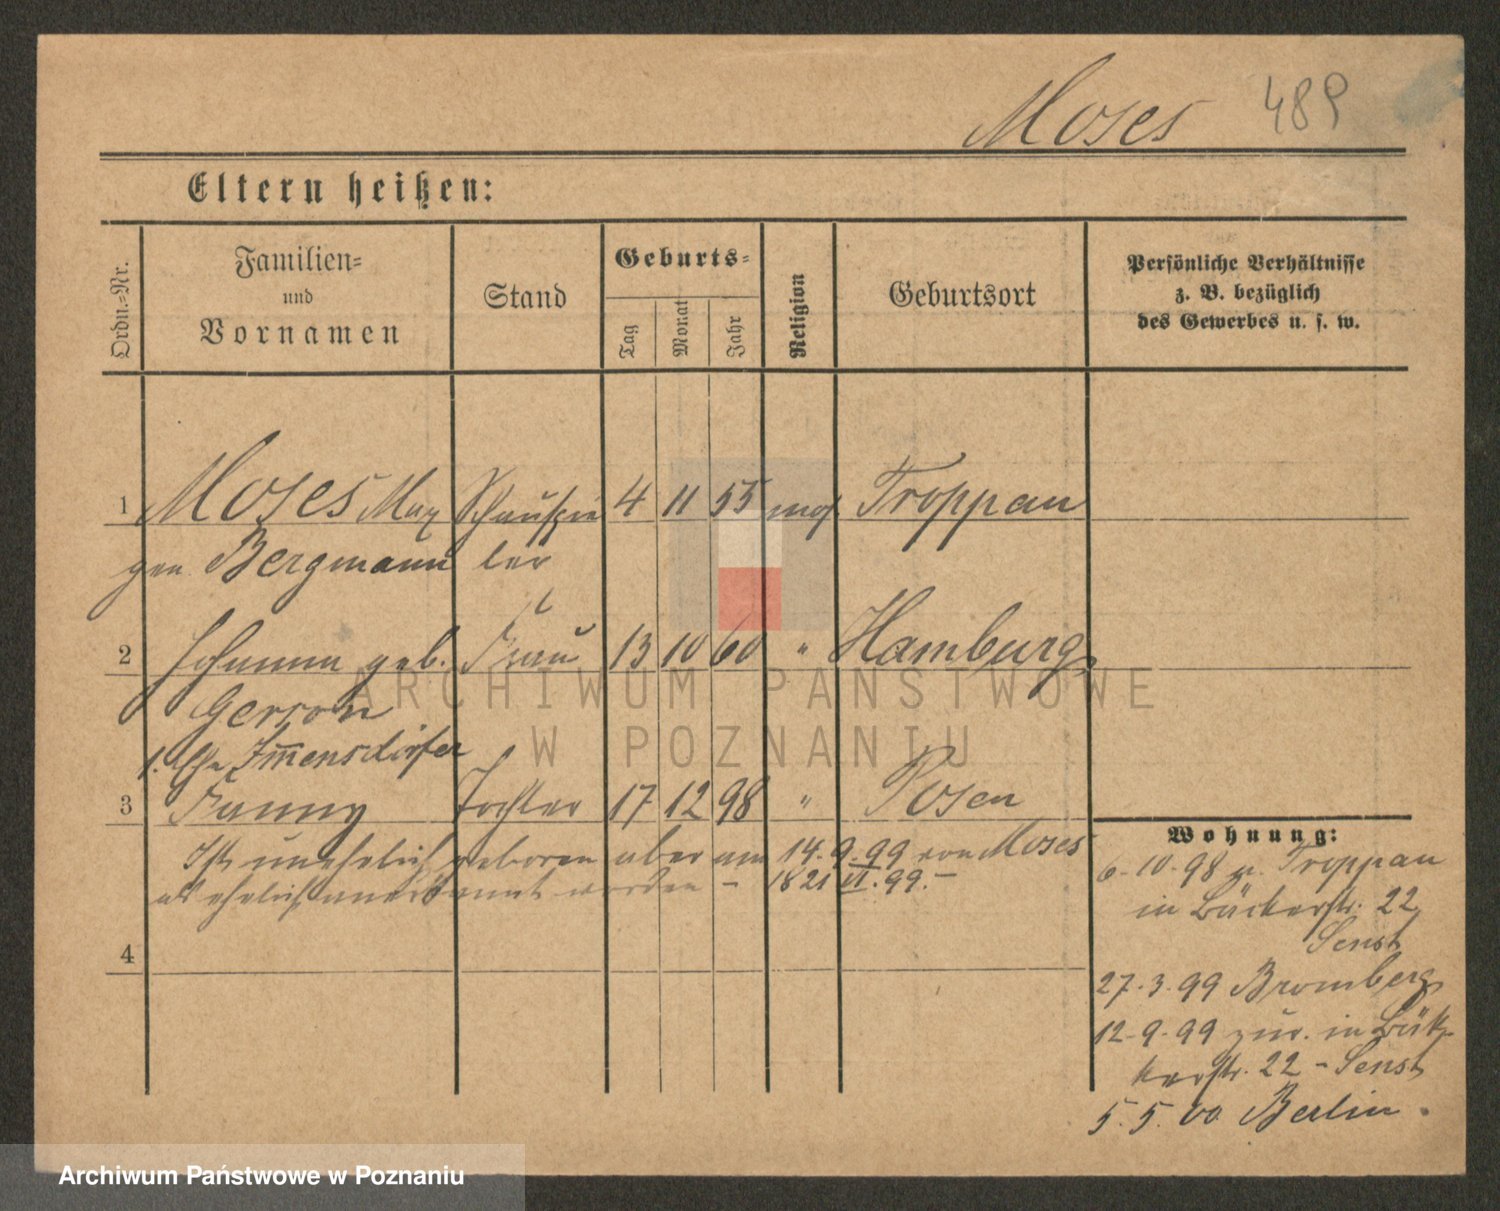 Moses 489
Eltern heißen:
Ordn.-Nr.
Familien-
und
Vornamen
Stand
Geburts-
Tag
Monat
Jahr
Religion
Geburtsort
Persönliche Verhältnisse
z. B. bezüglich
des Gewerbes u. s. w.
1 Moses Max Schauspie 4 11 55 mos Troppan
gen Bergmann ler
2 Johanna geb. Frau 13 10 60 " Hamburg
Gerson
1. Ehe Im̅ensdörfer
3 Fanny Tochter 17 12 98 " Posen
Ist unehelich geboren aber am 14.9.99 von Moses
als ehelich anerkannt worden – 1821 VI.99.–
4
Wohnung:
6-10-98 v. Troppau
in Bäckerstr. 22
Senst
27.3.99 Bromberg
12-9-99 zur. in Bäk
kerstr. 22 – Senst
5.5.00 Berlin.
ARCHIWUM PAŃSTWOWE
W POZNANIU
Archiwum Państwowe w Poznaniu